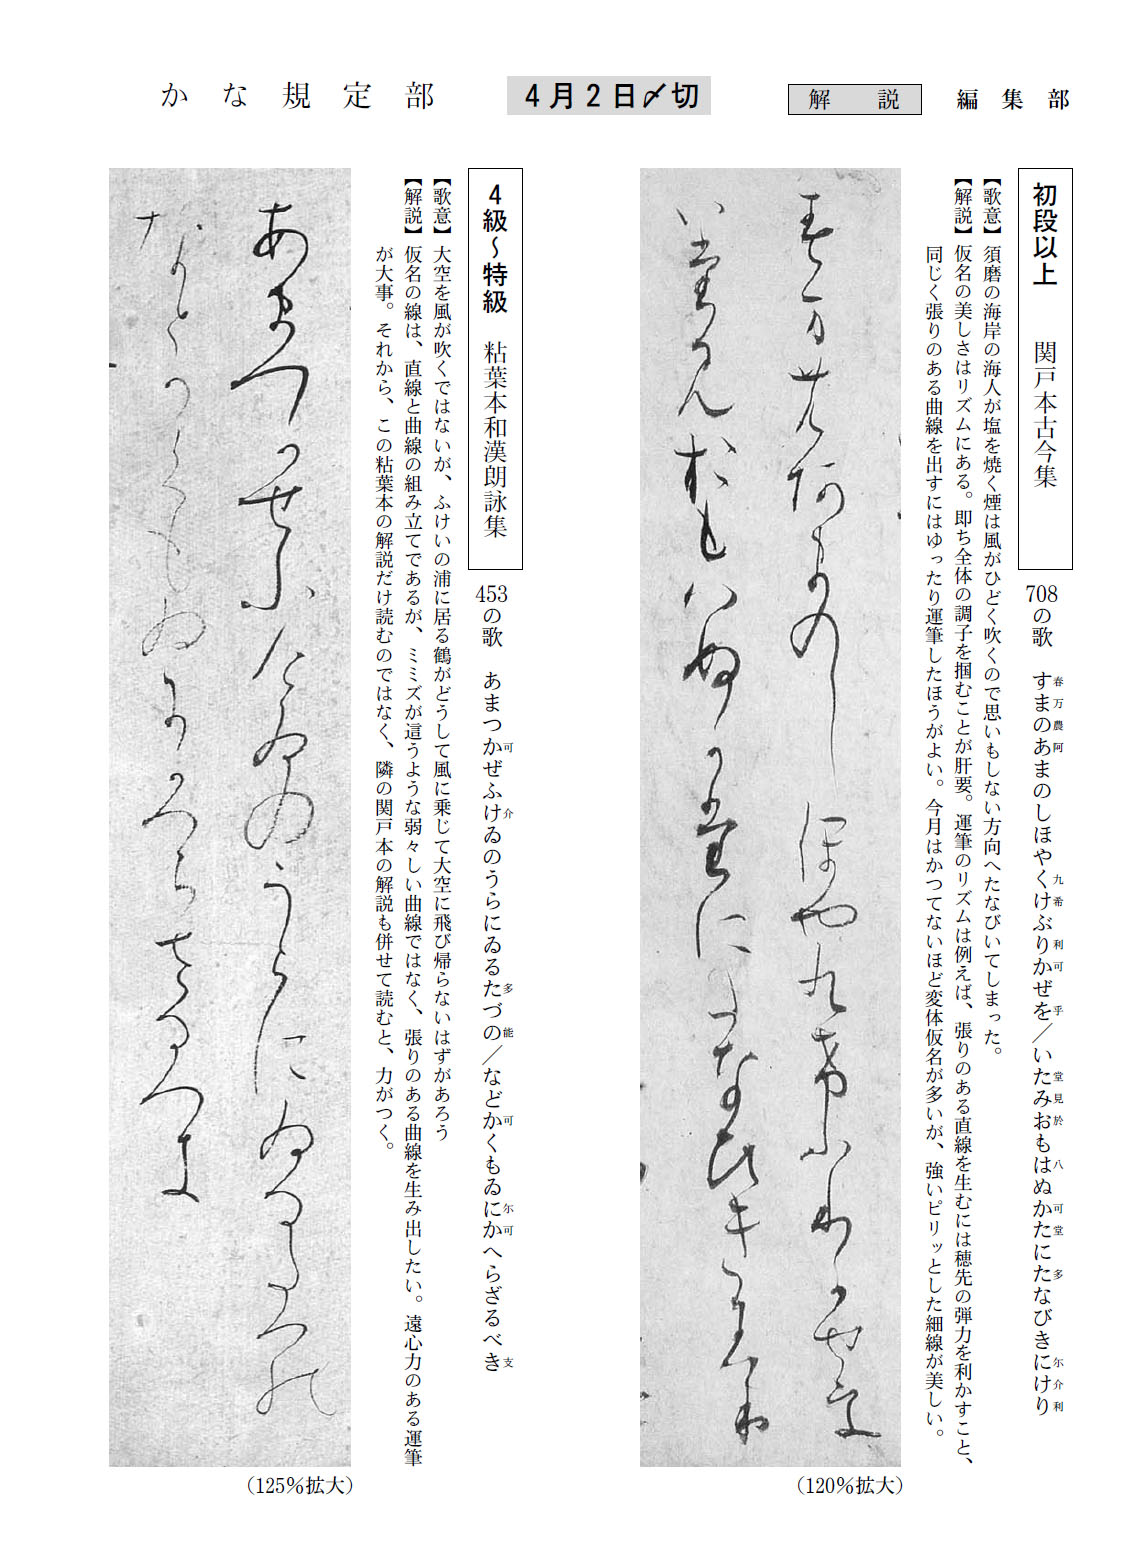 かな規定部
4月2日〆切
解説
編集部
初段以上 関戸本古今集
708の歌 すまのあまのしほやくけぶりかぜを／いたみおもはぬかたにたなびきにけり
春万農阿 九希 利可 乎 堂見於 八 可堂 多 尓介利
【歌意】須磨の海岸の海人が塩を焼く煙は風がひどく吹くので思いもしない方向へたなびいてしまった。
【解説】仮名の美しさはリズムにある。即ち全体の調子を掴むことが肝要。運筆のリズムは例えば、張りのある直線を生むには穂先の弾力を利かすこと、
同じく張りのある曲線を出すにはゆったり運筆したほうがよい。今月はかつてないほど変体仮名が多いが、強いピリッとした細線が美しい。
（120％拡大）
4級～特級 粘葉本和漢朗詠集
453の歌 あまつかぜふけゐのうらにゐるたづの／などかくもゐにかへらざるべき
可 介 多 能 可 尓可 支
【歌意】大空を風が吹くではないが、ふけいの浦に居る鶴がどうして風に乗じて大空に飛び帰らないはずがあろう
【解説】仮名の線は、直線と曲線の組み立てであるが、ミミズが這うような弱々しい曲線ではなく、張りのある曲線を生み出したい。遠心力のある運筆
が大事。それから、この粘葉本の解説だけ読むのではなく、隣の関戸本の解説も併せて読むと、力がつく。
（125％拡大）